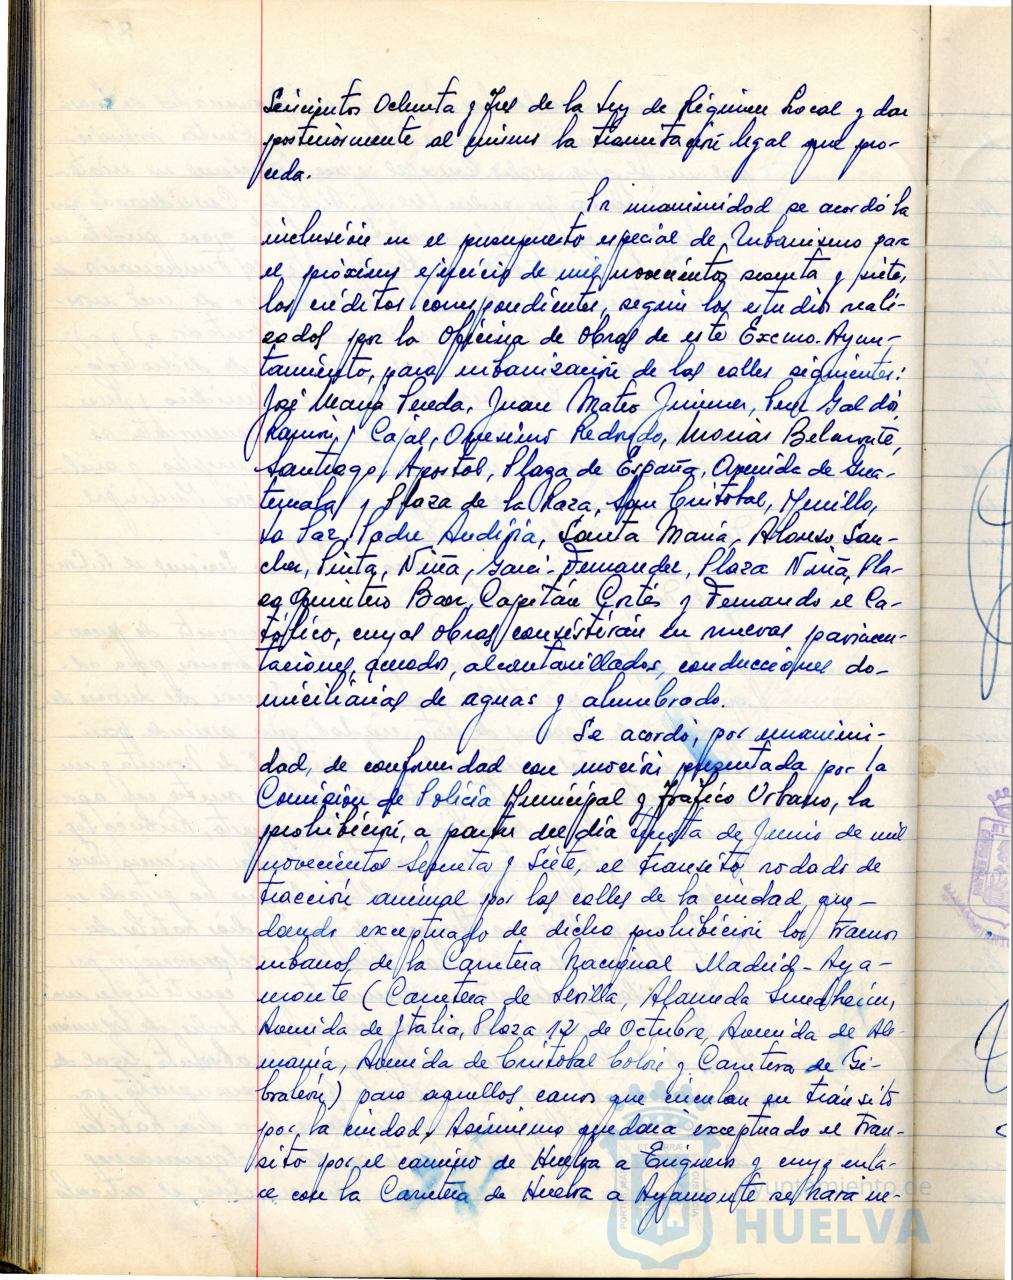 Seiscientos Ochenta y Tres de la Ley de Régimen Local y dar
posteriormente al mismo la tramitación legal que pro-
ceda.
Por unanimidad se acordó la
inclusión en el presupuesto especial de Urbanismo para
el próximo ejercicio de mil novecientos sesenta y siete,
los créditos correspondientes, según los estudios reali-
zados por la Oficina de Obras de este Excmo. Ayun-
tamiento, para urbanización de las calles siguientes:
José María Pereda, Juan Mateo Jiménez, Perez Galdós,
Ramón y Cajal, Onesimo Redondo, Macias Belmonte,
Santiago Apostol, Plaza de España, Avenida de Gua-
temala y Plaza de la Raza, San Cristobal, Murillo,
La Paz, Padre Andivia, Santa María, Alonso San-
chez, Pinta, Niña, Garci-Fernandez, Plaza Niña, Pla-
za Quintero Baez, Capitán Cortés y Fernando el Ca-
tólico, cuyas obras consistirán en nuevas pavimen-
taciones, acerados, alcantarillados, conducciones do-
miciliarias de aguas y alumbrado.
Se acordó, por unanimi-
dad, de conformidad con moción presentada por la
Comisión de Policía Municipal y Tráfico Urbano, la
prohibición, a partir del día treinta de Junio de mil
novecientos Sesenta y Siete, el tránsito rodado de
tracción animal por las calles de la ciudad, que-
dando exceptuado de dicha prohibición los tramos
urbanos de la Carretera Nacional Madrid-Aya-
monte (Carretera de Sevilla, Alameda Sundheim,
Avenida de Italia, Plaza 12 de Octubre, Avenida de Ale-
mania, Avenida de Cristobal Colón y Carretera de Gi-
braleón) para aquellos carros que circulan en tránsito
por la ciudad. Asimismo quedará exceptuado el tran-
sito por el camino de Huelva a Erigueros y cuyo enla-
ce con la Carretera de Huelva a Ayamonte se hará ne-
Ayuntamiento de
HUELVA